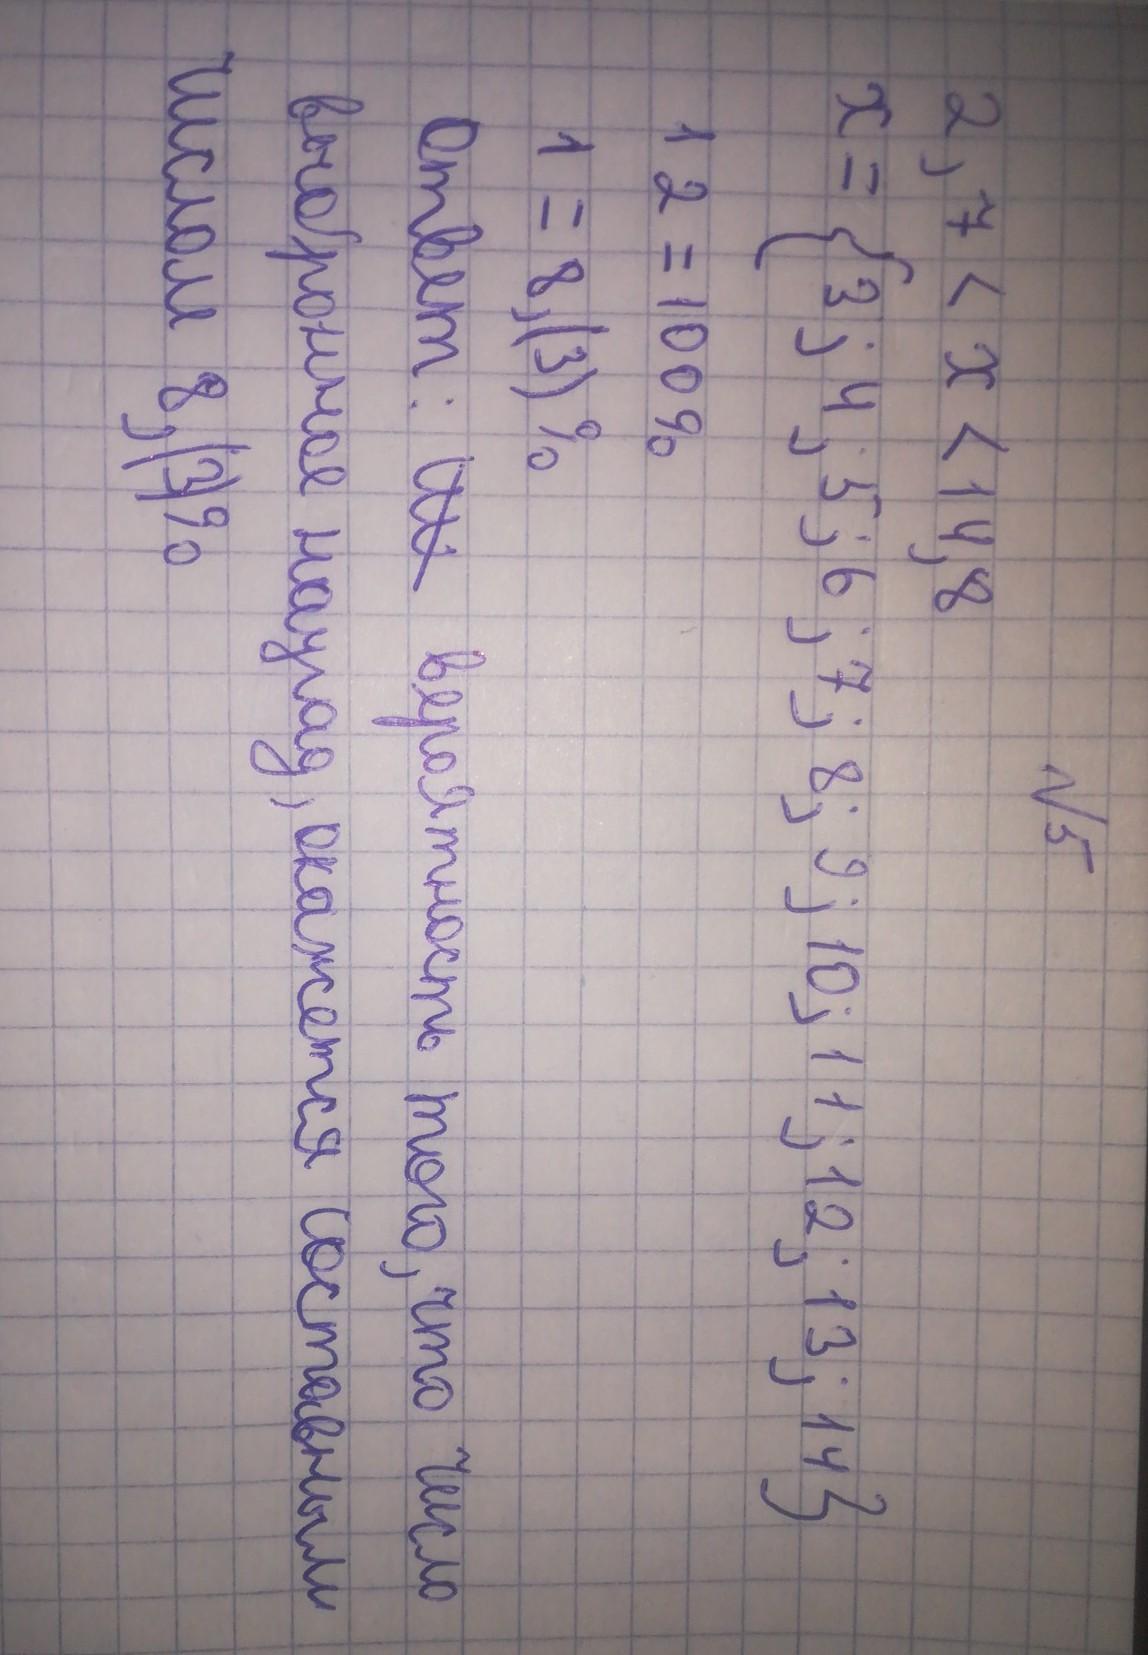 √5
2,7 < x < 14,8
x = {3; 4; 5; 6; 7; 8; 9; 10; 11; 12; 13; 14}
12 = 100%
1 = 8,(3)%
Ответ: вероятность того, что число
выбронное наугад, окажется составным
числом 8,(3)%